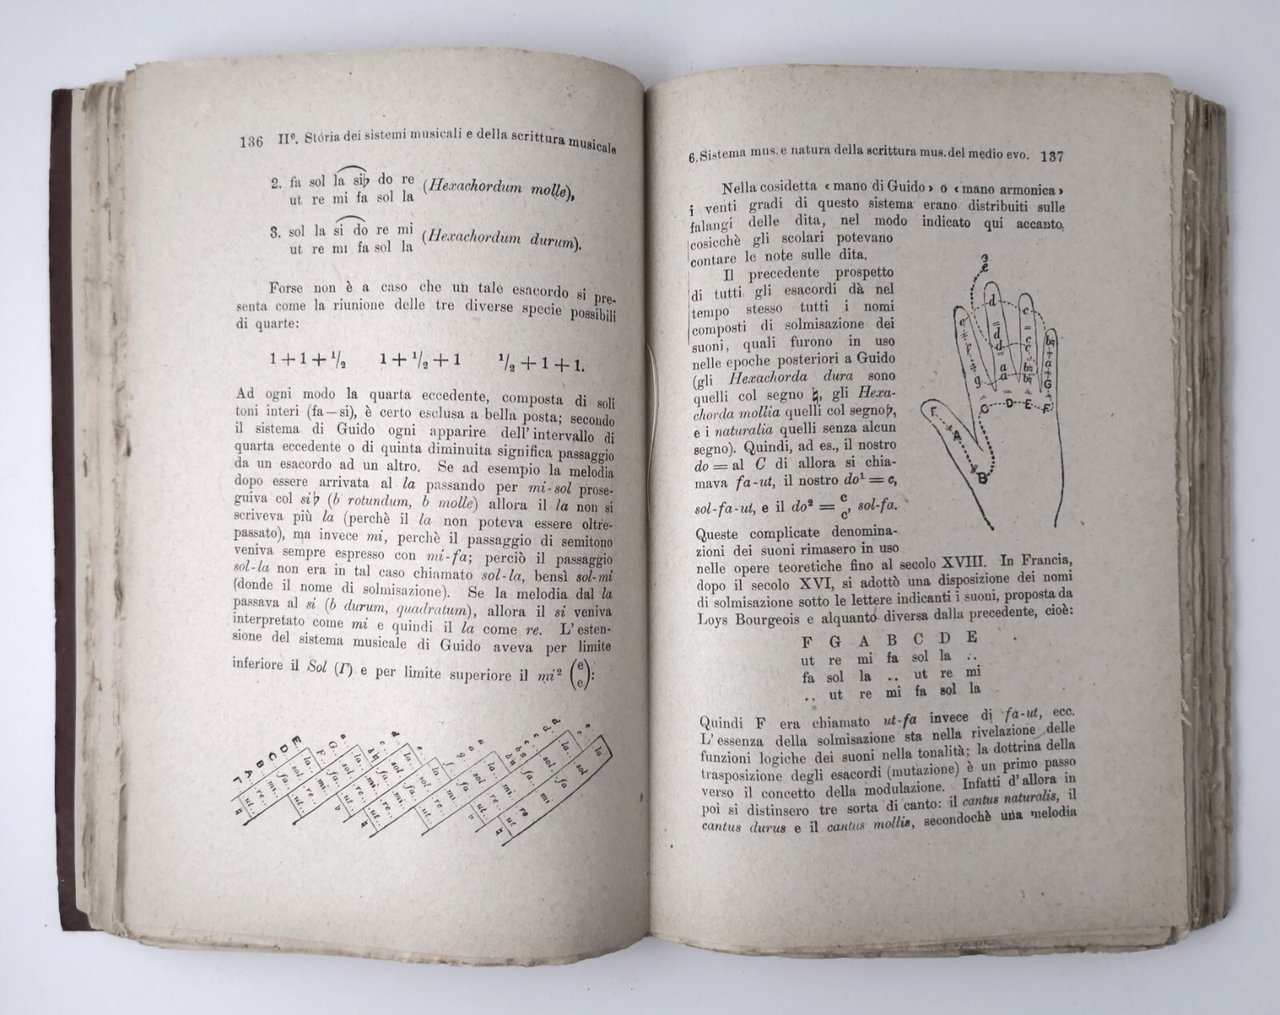 136 IIº. Storia dei sistemi musicali e della scrittura musicale
2. fa sol la si♭ do re (Hexachordum molle),
ut re mi fa sol la
3. sol la si do re mi (Hexachordum durum).
ut re mi fa sol la
Forse non è a caso che un tale esacordo si pre-
senta come la riunione delle tre diverse specie possibili
di quarte:
1 + 1 + ¹/₂ 1 + ¹/₂ + 1 ¹/₂ + 1 + 1.
Ad ogni modo la quarta eccedente, composta di soli
toni interi (fa—si), è certo esclusa a bella posta; secondo
il sistema di Guido ogni apparire dell'intervallo di
quarta eccedente o di quinta diminuita significa passaggio
da un esacordo ad un altro. Se ad esempio la melodia
dopo essere arrivata al la passando per mi-sol prose-
guiva col si♭ (b rotundum, b molle) allora il la non si
scriveva più la (perchè il la non poteva essere oltre-
passato), ma invece mi, perchè il passaggio di semitono
veniva sempre espresso con mi-fa; perciò il passaggio
sol-la non era in tal caso chiamato sol-la, bensì sol-mi
(donde il nome di solmisazione). Se la melodia dal la
passava al si (b durum, quadratum), allora il si veniva
interpretato come mi e quindi il la come re. L'esten-
sione del sistema musicale di Guido aveva per limite
inferiore il Sol (Γ) e per limite superiore il mi² (e e):
Γ A B C D E F G a
6. Sistema mus. e natura della scrittura mus. del medio evo. 137
Nella cosidetta «mano di Guido» o «mano armonica»
i venti gradi di questo sistema erano distribuiti sulle
falangi delle dita, nel modo indicato qui accanto,
cosicchè gli scolari potevano
contare le note sulle dita.
Il precedente prospetto
di tutti gli esacordi dà nel
tempo stesso tutti i nomi
composti di solmisazione dei
suoni, quali furono in uso
nelle epoche posteriori a Guido
(gli Hexachorda dura sono
quelli col segno ♮, gli Hexa-
chorda mollia quelli col segno ♭,
e i naturalia quelli senza alcun
segno). Quindi, ad es., il nostro
do = al C di allora si chia-
mava fa-ut, il nostro do¹ = c,
sol-fa-ut, e il do² = c c, sol-fa.
Queste complicate denomina-
zioni dei suoni rimasero in uso
nelle opere teoretiche fino al secolo XVIII. In Francia,
dopo il secolo XVI, si adottò una disposizione dei nomi
di solmisazione sotto le lettere indicanti i suoni, proposta da
Loys Bourgeois e alquanto diversa dalla precedente, cioè:
F G A B C D E
ut re mi fa sol la ..
fa sol la .. ut re mi
.. ut re mi fa sol la
Quindi F era chiamato ut-fa invece di fa-ut, ecc.
L'essenza della solmisazione sta nella rivelazione delle
funzioni logiche dei suoni nella tonalità; la dottrina della
trasposizione degli esacordi (mutazione) è un primo passo
verso il concetto della modulazione. Infatti d'allora in
poi si distinsero tre sorta di canto: il cantus naturalis, il
cantus durus e il cantus mollis, secondochè una melodia